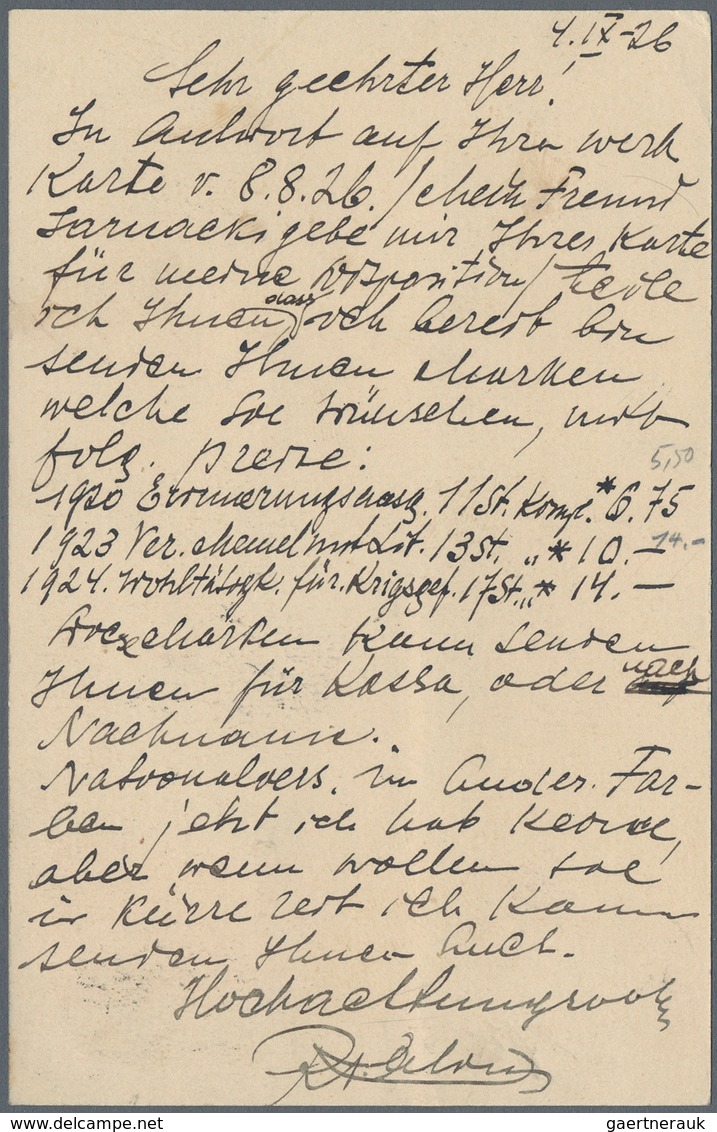 4.IX-26
Sehr geehrter Herr!
In Antwort auf Ihre werth
Karte v. 8.8.26. / Mein Freund
Sarnacki gebe mir Ihres Karte
für meine Disposition / teile
ich Ihnen, dass ich bereit bin
senden Ihnen Marken
welche Sie wünschen, mit
folg. preise:
5,50
1920 Erinnerungsausg. 11 St. kompl. * 6.75
1923 Ver. Memel mit Lit. 13 St. „ * 10.— 14.-
1924. Wohltätigk. für. Krigsgef. 17 St. „ * 14.—
Marken kann senden
Ihnen für Kassa, oder nach
Nachname.
Nationalvers. in Ander. Far-
ben jetzt ich hab keine,
aber wenn wollen sie
in kürze zeit ich kann
senden Ihnen Auch.
Hochachtungsvoll
gaertnerauk